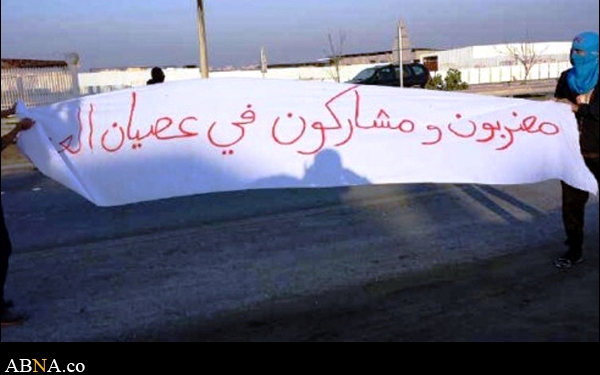 مضربون و مشاركون في عصيان الع
ABNA.co